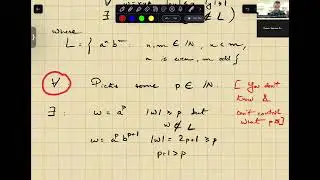 where
L = { aⁿ bᵐ : n, m ∈ ℕ, n < m,
n is even, m odd }
∀ Picks some p ∈ ℕ. [ You don't
know &
can't control
what p is ]
∃ : w = aᵖ |w| ≥ p but
w ∉ L
w = aᵖ bᵖ⁺¹ |w| = 2p+1 ≥ p
p+1 > p